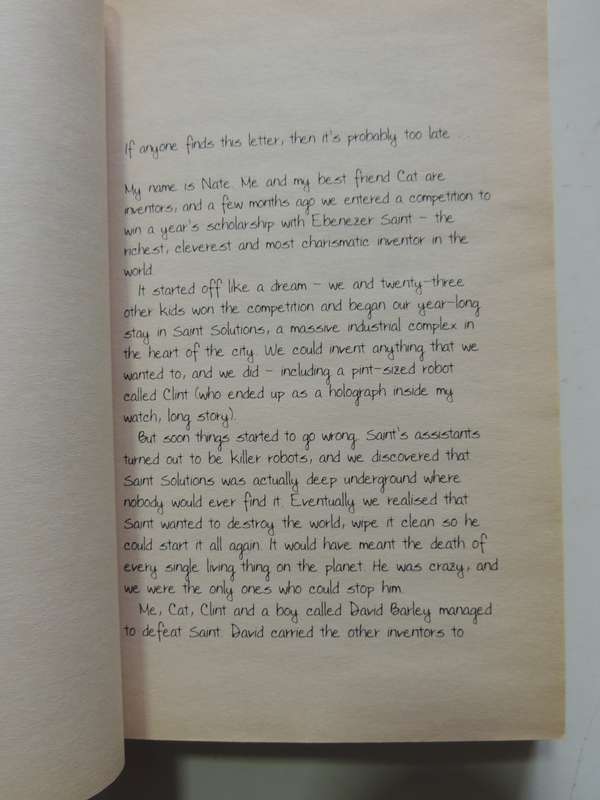 If anyone finds this letter, then it's probably too late ...
My name is Nate. Me and my best friend Cat are
inventors, and a few months ago we entered a competition to
win a year's scholarship with Ebenezer Saint – the
richest, cleverest and most charismatic inventor in the
world.
It started off like a dream – we and twenty-three
other kids won the competition and began our year-long
stay in Saint Solutions, a massive industrial complex in
the heart of the city. We could invent anything that we
wanted to, and we did – including a pint-sized robot
called Clint (who ended up as a holograph inside my
watch, long story).
But soon things started to go wrong. Saint's assistants
turned out to be killer robots, and we discovered that
Saint Solutions was actually deep underground where
nobody would ever find it. Eventually we realised that
Saint wanted to destroy the world, wipe it clean so he
could start it all again. It would have meant the death of
every single living thing on the planet. He was crazy, and
we were the only ones who could stop him.
Me, Cat, Clint and a boy called David Barley managed
to defeat Saint. David carried the other inventors to